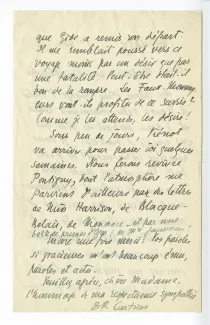 que Gide a remis son départ.
Il me semblait poussé vers ce
voyage moins par un désir que par
une fatalité. Peut-être était-il
bon de la rompre. Les Faux-Monnay
eurs vont-ils profiter de ce sursis?
Comme je les attends, les désire!
Sous peu de jours, Viénot
va arriver pour passer ici quelques
semaines. Nous ferons revivre
Pontigny, dont l'atmosphère me
parvient d'ailleurs par des lettres
de Miss Harrison, de Blacque-
Belair, de et par une
Encore une fois merci! Vos paroles
si gracieuses m'ont beaucoup ému,
paroles et actes.
Veuillez agréer, chère Madame,
l'hommage de ma respectueuse sympathie
E R Curtius